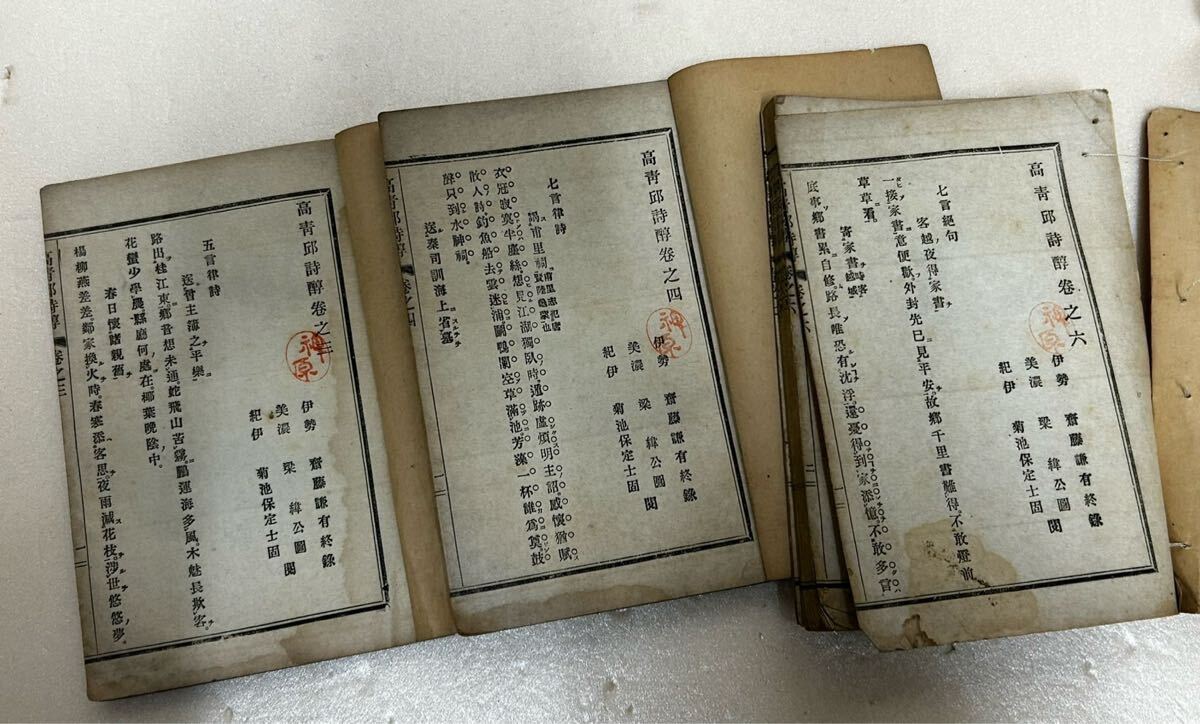 高靑邱詩醇卷之三
伊勢 齋藤謙有終錄
美濃 梁緯公圖 閱
紀伊 菊池保定士固
五言律詩
送曾主簿之平樂
路出桂江東鄕音想未通蛇飛山苦
鵬運海多風木魅長欺客
花蠻少學農縣廳何處在椰葉晩陰中
春日懷諸親舊
楊柳燕差差鄰家換火時春寒添客思夜雨減花枝涉世悠悠夢
神原
高靑邱詩醇卷之四
伊勢 齋藤謙有終錄
美濃 梁緯公圖 閱
紀伊 菊池保定士固
七言律詩
謁甫里祠
衣冠寂寞半塵絲想見江湖獨臥時遺跡虛煩明主詔感懷猶賦
散人詩釣魚船去雲迷浦鬪鴨闌空草滿池芳藻一杯誰爲奠鼓
聲只到水神祠
送秦司訓海上省墓
神原
高靑邱詩醇卷之六
伊勢 齋藤謙有終錄
美濃 梁緯公圖 閱
紀伊 菊池保定士固
七言絕句
客越夜得家書
一接家書意便歡外封先已見平安故鄕千里書難得不敢燈前
草草看
寄家書
底事鄕書累自修路長唯恐有沈浮還憂得到家添憶不敢多言
神原